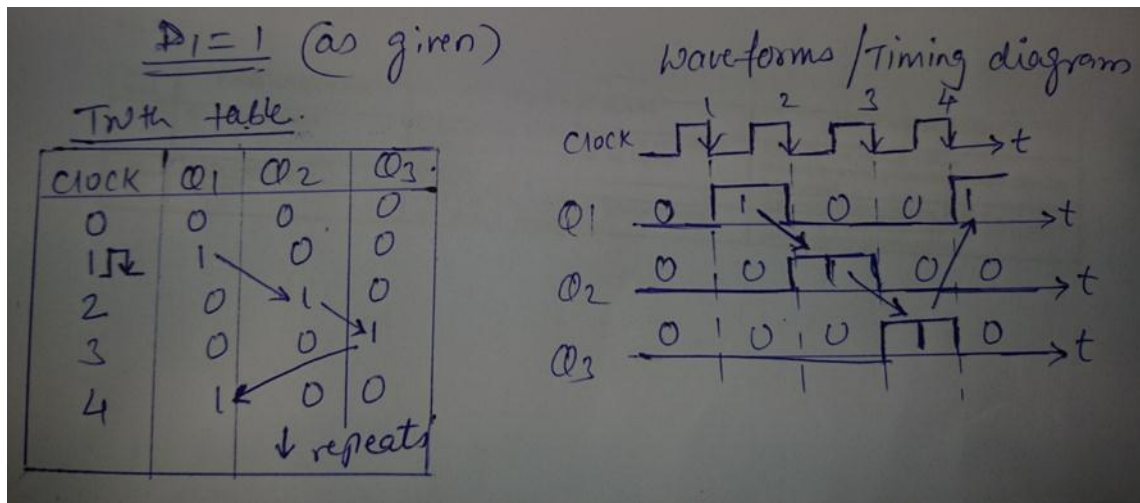 D1 = 1 (as given)
Truth table.
Clock Q1 Q2 Q3
0 0 0 0
1 1 0 0
2 0 1 0
3 0 0 1
4 1 0 0
↓ repeats
Waveforms / Timing diagram
1 2 3 4
Clock t
Q1 0 1 0 0 1 t
Q2 0 0 1 0 0 t
Q3 0 0 0 1 0 t